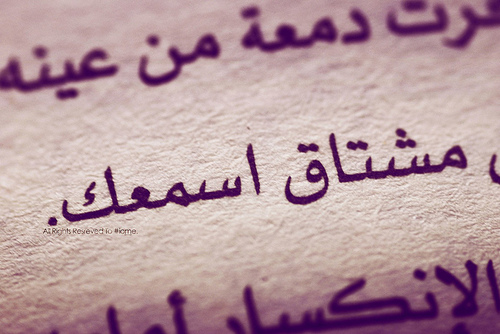 دمعة من عينه
مشتاق اسمعك.
All Rights Reserved to #iame
الإنكسار